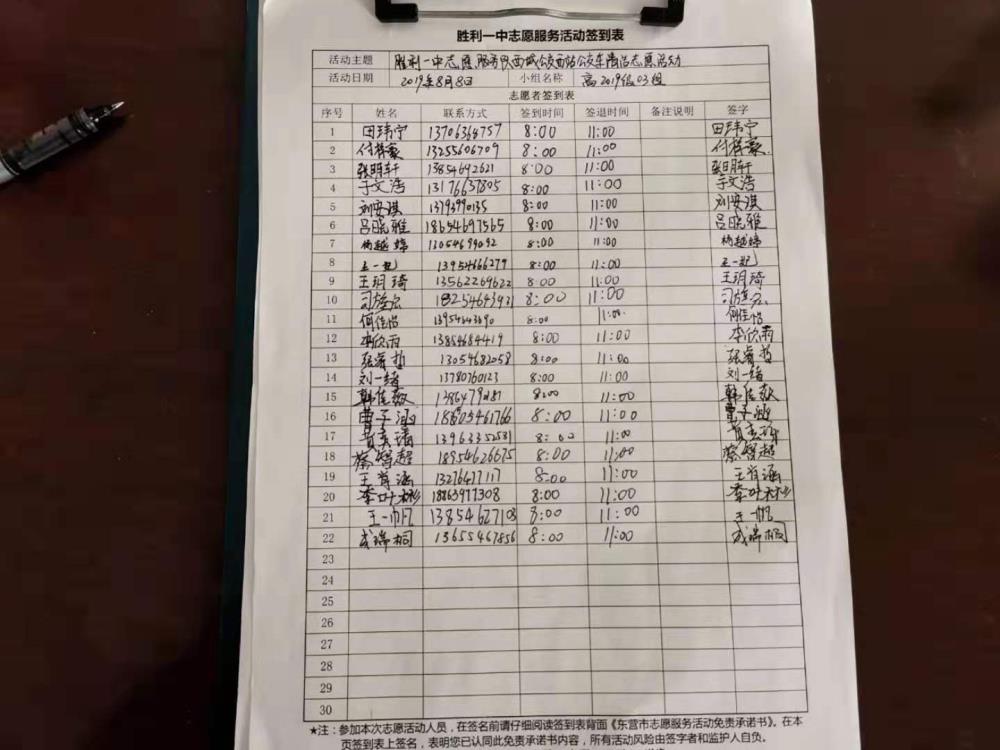 胜利一中志愿服务活动签到表
活动主题 胜利一中志愿服务队西城公交西站公交车清洁志愿活动
活动日期 2019年8月8日 小组名称 高2019级03组
志愿者签到表
序号 姓名 联系方式 签到时间 签退时间 备注说明 签字
1 田玮宁 13706364757 8:00 11:00 田玮宁
2 13255606709 8:00 11:00
3 13854692621 8:00 11:00
4 于文浩 13176637805 8:00 11:00 于文浩
5 刘安淇 13793990135 8:00 11:00 刘安淇
6 吕晓雅 18654697565 8:00 11:00 吕晓雅
7 杨越婷 13054699092 8:00 11:00 杨越婷
8 13954666279 8:00 11:00
9 王玥琦 13562269622 8:00 11:00 王玥琦
10 18254643931 8:00 11:00
11 何佳怡 8:00 11:00 何佳怡
12 李欣雨 13854684419 8:00 11:00 李欣雨
13 张睿哲 13054682058 8:00 11:00 张睿哲
14 刘一绪 13780760123 8:00 11:00 刘一绪
15 8:00 11:00
16 曹子涵 18605461766 8:00 11:00 曹子涵
17 13963352531 8:00 11:00
18 蔡智超 18954626675 8:00 11:00 蔡智超
19 王肖涵 13276477117 8:00 11:00 王肖涵
20 李叶彬 18863977308 8:00 11:00
21 王一帆 13854627108 8:00 11:00 王一帆
22 成瑞桐 13655467856 8:00 11:00 成瑞桐
23
24
25
26
27
28
29
30
★注：参加本次志愿活动人员，在签名前请仔细阅读签到表背面《东营市志愿服务活动免责承诺书》。在本
页签到表上签名，表明您已认同此免责承诺书内容，所有活动风险由签字者和监护人自负。